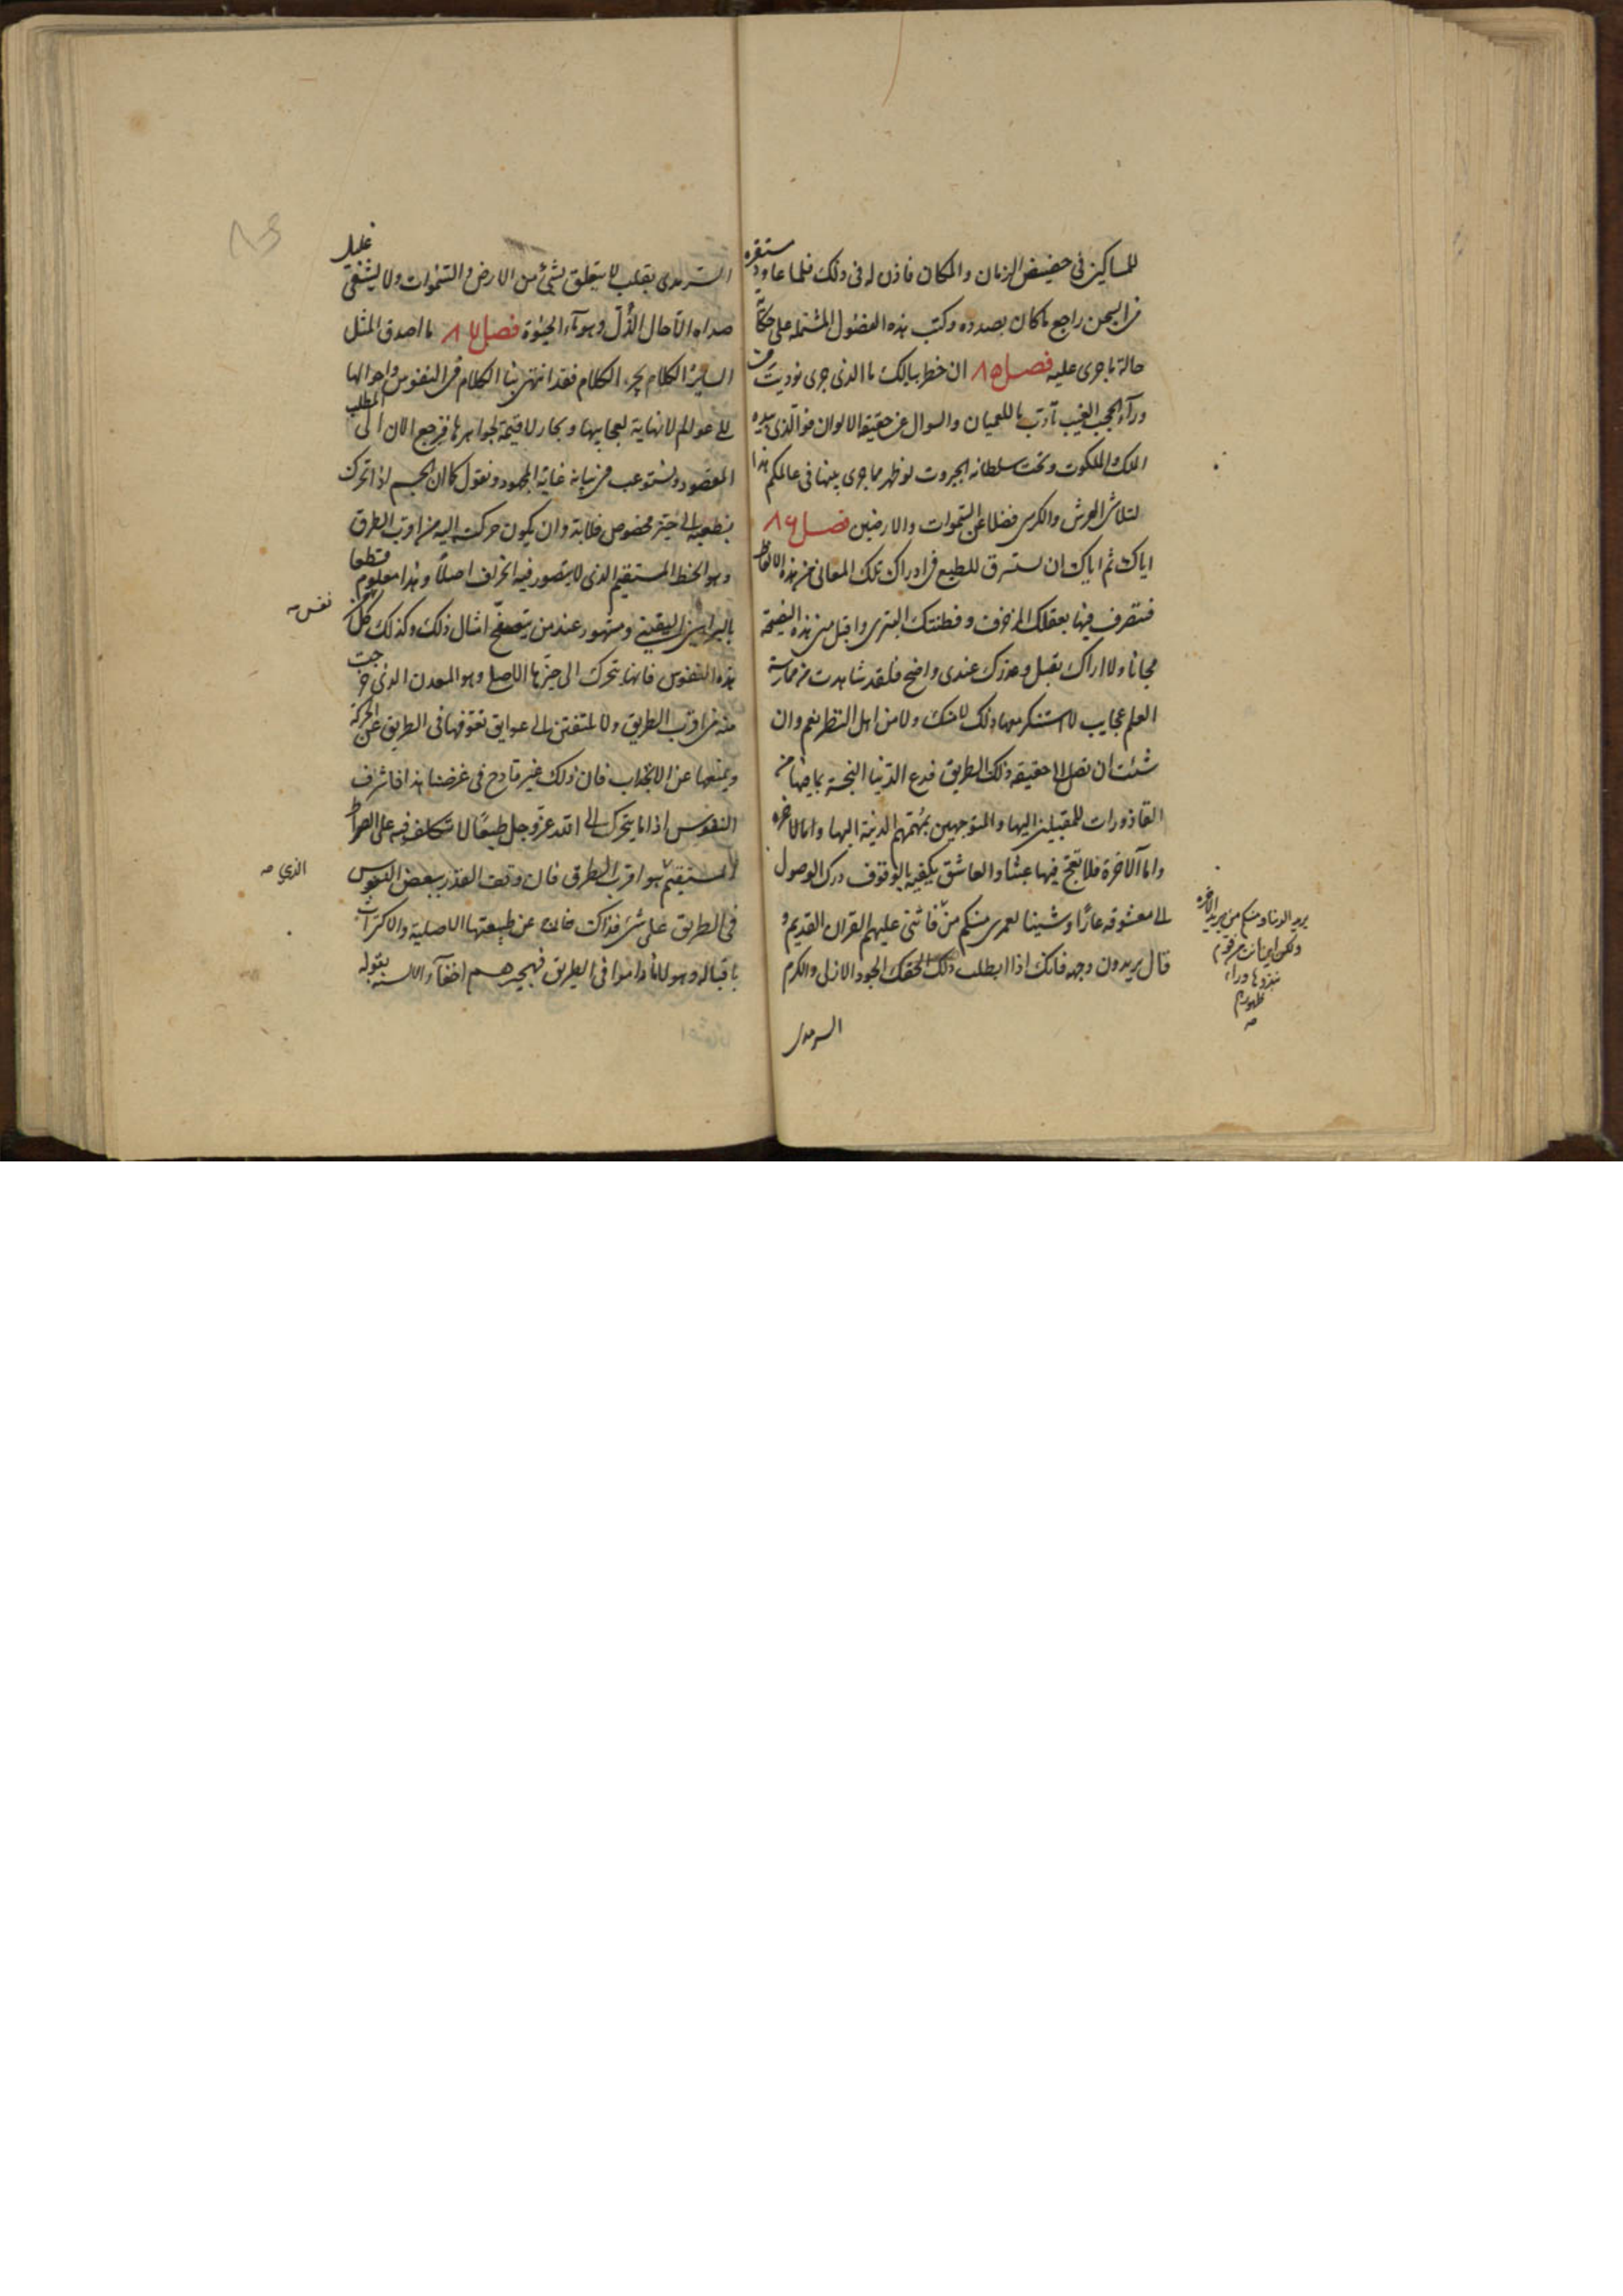 للمساكين فى حضيض الزمان والمكان فاذن له فى ذلك فلما عاود مستقره
من السجن راجع ما كان بصدده وكتب هذه الفصول المشتملة على حكاية
حالة ما جرى عليه فصل ٨٥ ان خطر ببالك ما الذى جرى نوديت من
ورآء الحجب الغيب تأدب ما للعميان والسوال عن حقيقة الالوان فوالذى بيده
الملك والملكوت وتحت سلطانه الجبروت لو ظهر مما جرى بينها فى عالمكم هذا
لتلاشى العرش والكرسى فضلا عن السموات والارضين فصل ٨٦
اياك ثم اياك ان تسترق للطبع فى ادراك تلك المعانى من هذه الالفاظ
فتصرف فيها بعقلك المزخرف وفطنتك البترى واقبل منى هذه النصيحة
مجانا ولا اراك تقبل وعذرك عندى واضح فلقد شاهدت من ممارسة
العلم عجايب لا استنكر معها ذلك لا منك ولا من اهل النظر نعم وان
شئت ان تصل الى حقيقة ذلك الطريق فدع الدنيا النجسة بما فيها من
القاذورات للمقبلين اليها والمتوجهين بهمتهم الدنية اليها وابناء الاخرة
واما الآخرة فلا تعج فيها عبثا والعاشق يكفيه بالوقوف درك الوصول
الى معشوقه عارا وشينا لعمرى منكم من فاثنى عليهم القران القديم و
قال يريدون وجهه فانك اذا طلبت ذلك الحقك الجود الازلى والكرم
السرمدى
يريد الدنيا ومنكم من يريد الاخرة
ولكن اين انت من قوم
نبذوها وراء
ظهورهم
صه
السرمدى بقلب لا يتعلق بشئ من الارض والسموات ولا يشفى غليل
صداه الا حال الاول وهو مآء الحيوة فصل ٨٧ ما اصدق المثل
الساير الكلام يجر الكلام فقد انتهى بنا الكلام فى النفوس واحوالها
الى عوالم لا نهاية لعجايبها وبحار لا قيمة لجواهرها فنرجع الان الى المطلب
المقصود ونستوعب فى بيانه غاية المجهود ونقول كما ان الجسم اذا تحرك
بطبعه الى حيز مخصوص فلا بد وان يكون حركته اليه من اقرب الطرق
وهو الخط المستقيم الذى لا يتصور فيه انحراف اصلا وهذا معلوم قطعا
بالبراهين اليقينية ومشهور عند من يتصفح امثال ذلك وكذلك كل
نفس صه
هذه النفوس فانها تتحرك الى حيزها الاصلى وهو المعدن الذى خرجت
منه من اقرب الطريق ولا تلتفتن الى عوايق تعوقها فى الطريق عن الحركة
ويمنعها عن الانجذاب فان ذلك غير قادح فى غرضنا هذا فاشرف
النفوس اذا ما يتحرك الى الله عز وجل طبعا لا تكلف فيه على الصراط
المستقيم هو اقرب الطرق فان وقف القدر ببعض النفوس
الذي صه
فى الطريق على شئ فذاك خارج عن طبيعتها الاصلية والاكتراث
باقباله وهولاء ما داموا فى الطريق فهجيرهم اخفآء والالسنة بقوله